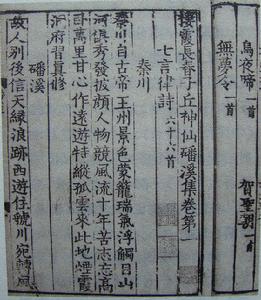 烏夜啼一首 賀聖朝
無夢令一首
棲霞長春子丘神仙磻溪集卷第一
七言律詩六十六首
秦川
秦川自古帝王州景色蒙籠瑞氣浮觸目山
河俱秀發披顏人物競風流十年苦志忘高
臥萬里甘心作遠遊特縱孤雲來此地煙霞
洞府習真修
磻溪
故人別後信天緣浪跡西遊住虢川宛轉風